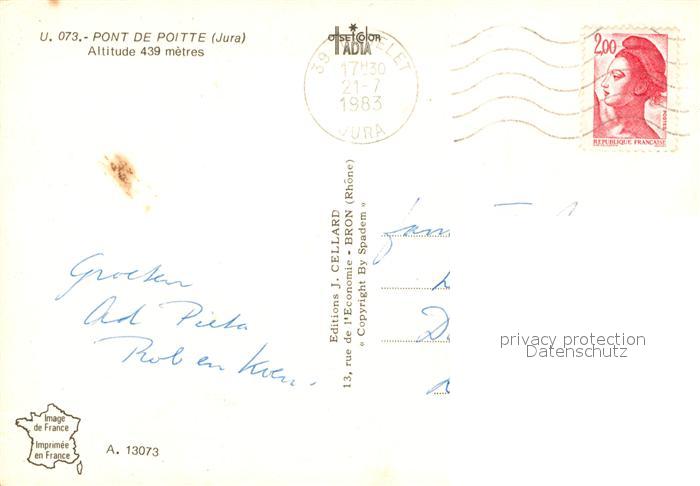 U. 073.- PONT DE POITTE (Jura)
Altitude 439 mètres
OFFSET COLOR
IADIA
39
ELET
17H30
21-7
1983
JURA
2,00
POSTES
REPUBLIQUE FRANÇAISE
Groeten
Ad Pieta
Rob en
Editions J. CELLARD
13, rue de l'Economie - BRON (Rhône)
« Copyright By Spadem »
fam
privacy protection
Datenschutz
Image
de France
Imprimée
en France
A. 13073